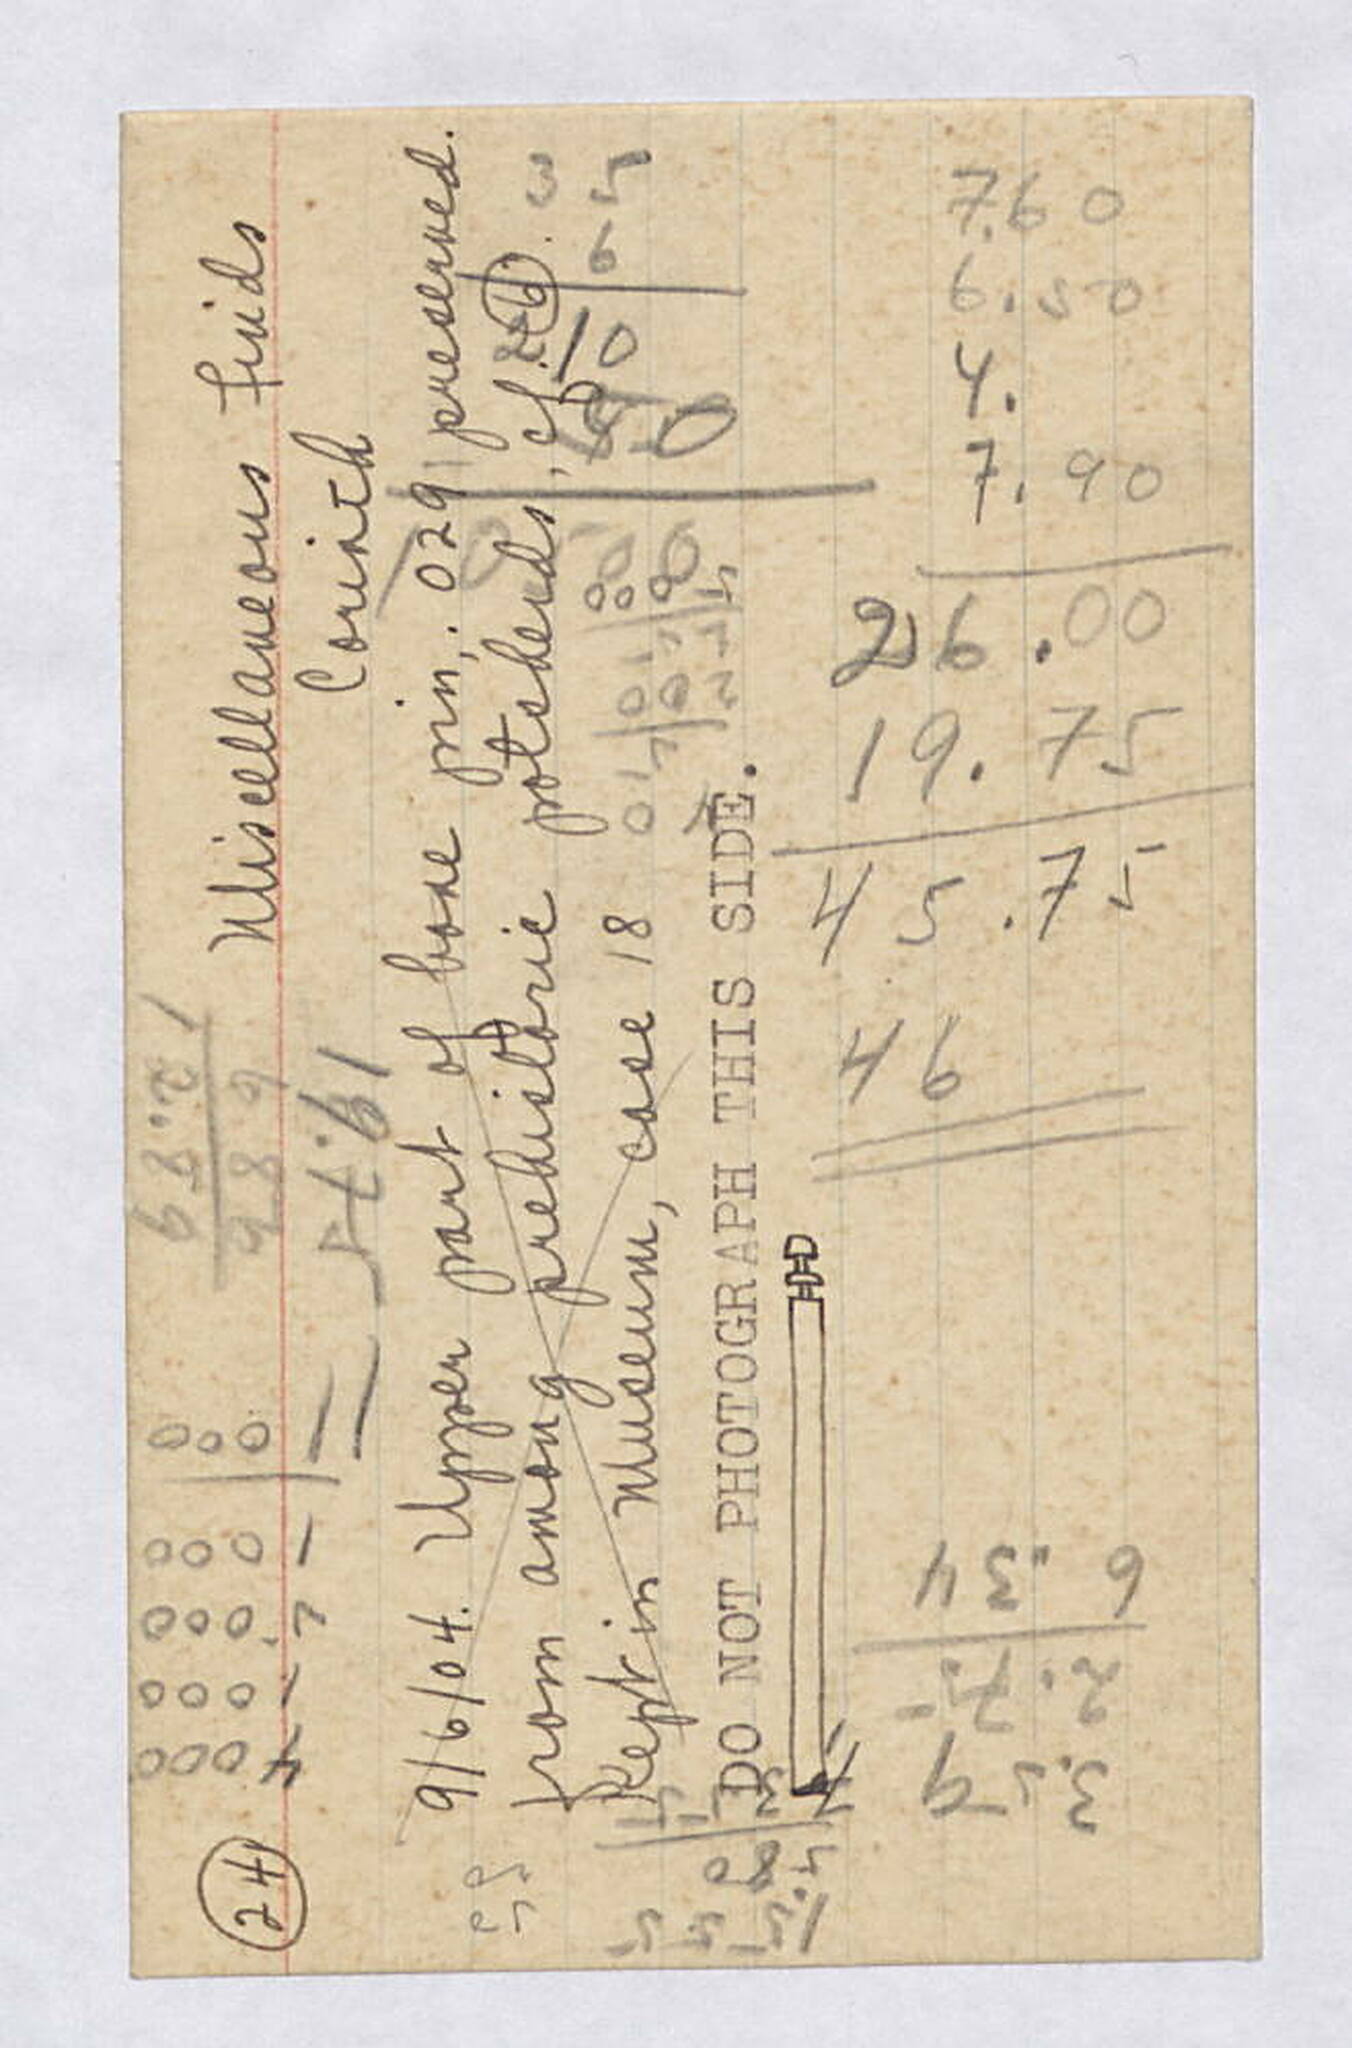 24
Miscellaneous Finds
Corinth
9/6/04. Upper part of bone pin, .029 preserved.
From among prehistoric potsherds, cf. 26.
Kept in Museum, case 18
DO NOT PHOTOGRAPH THIS SIDE.
7.60
6.50
4.
7.90
26.00
19.75
45.75
46
3.59
2.75
6.34
19.75
000
000
000
000
000
6
10